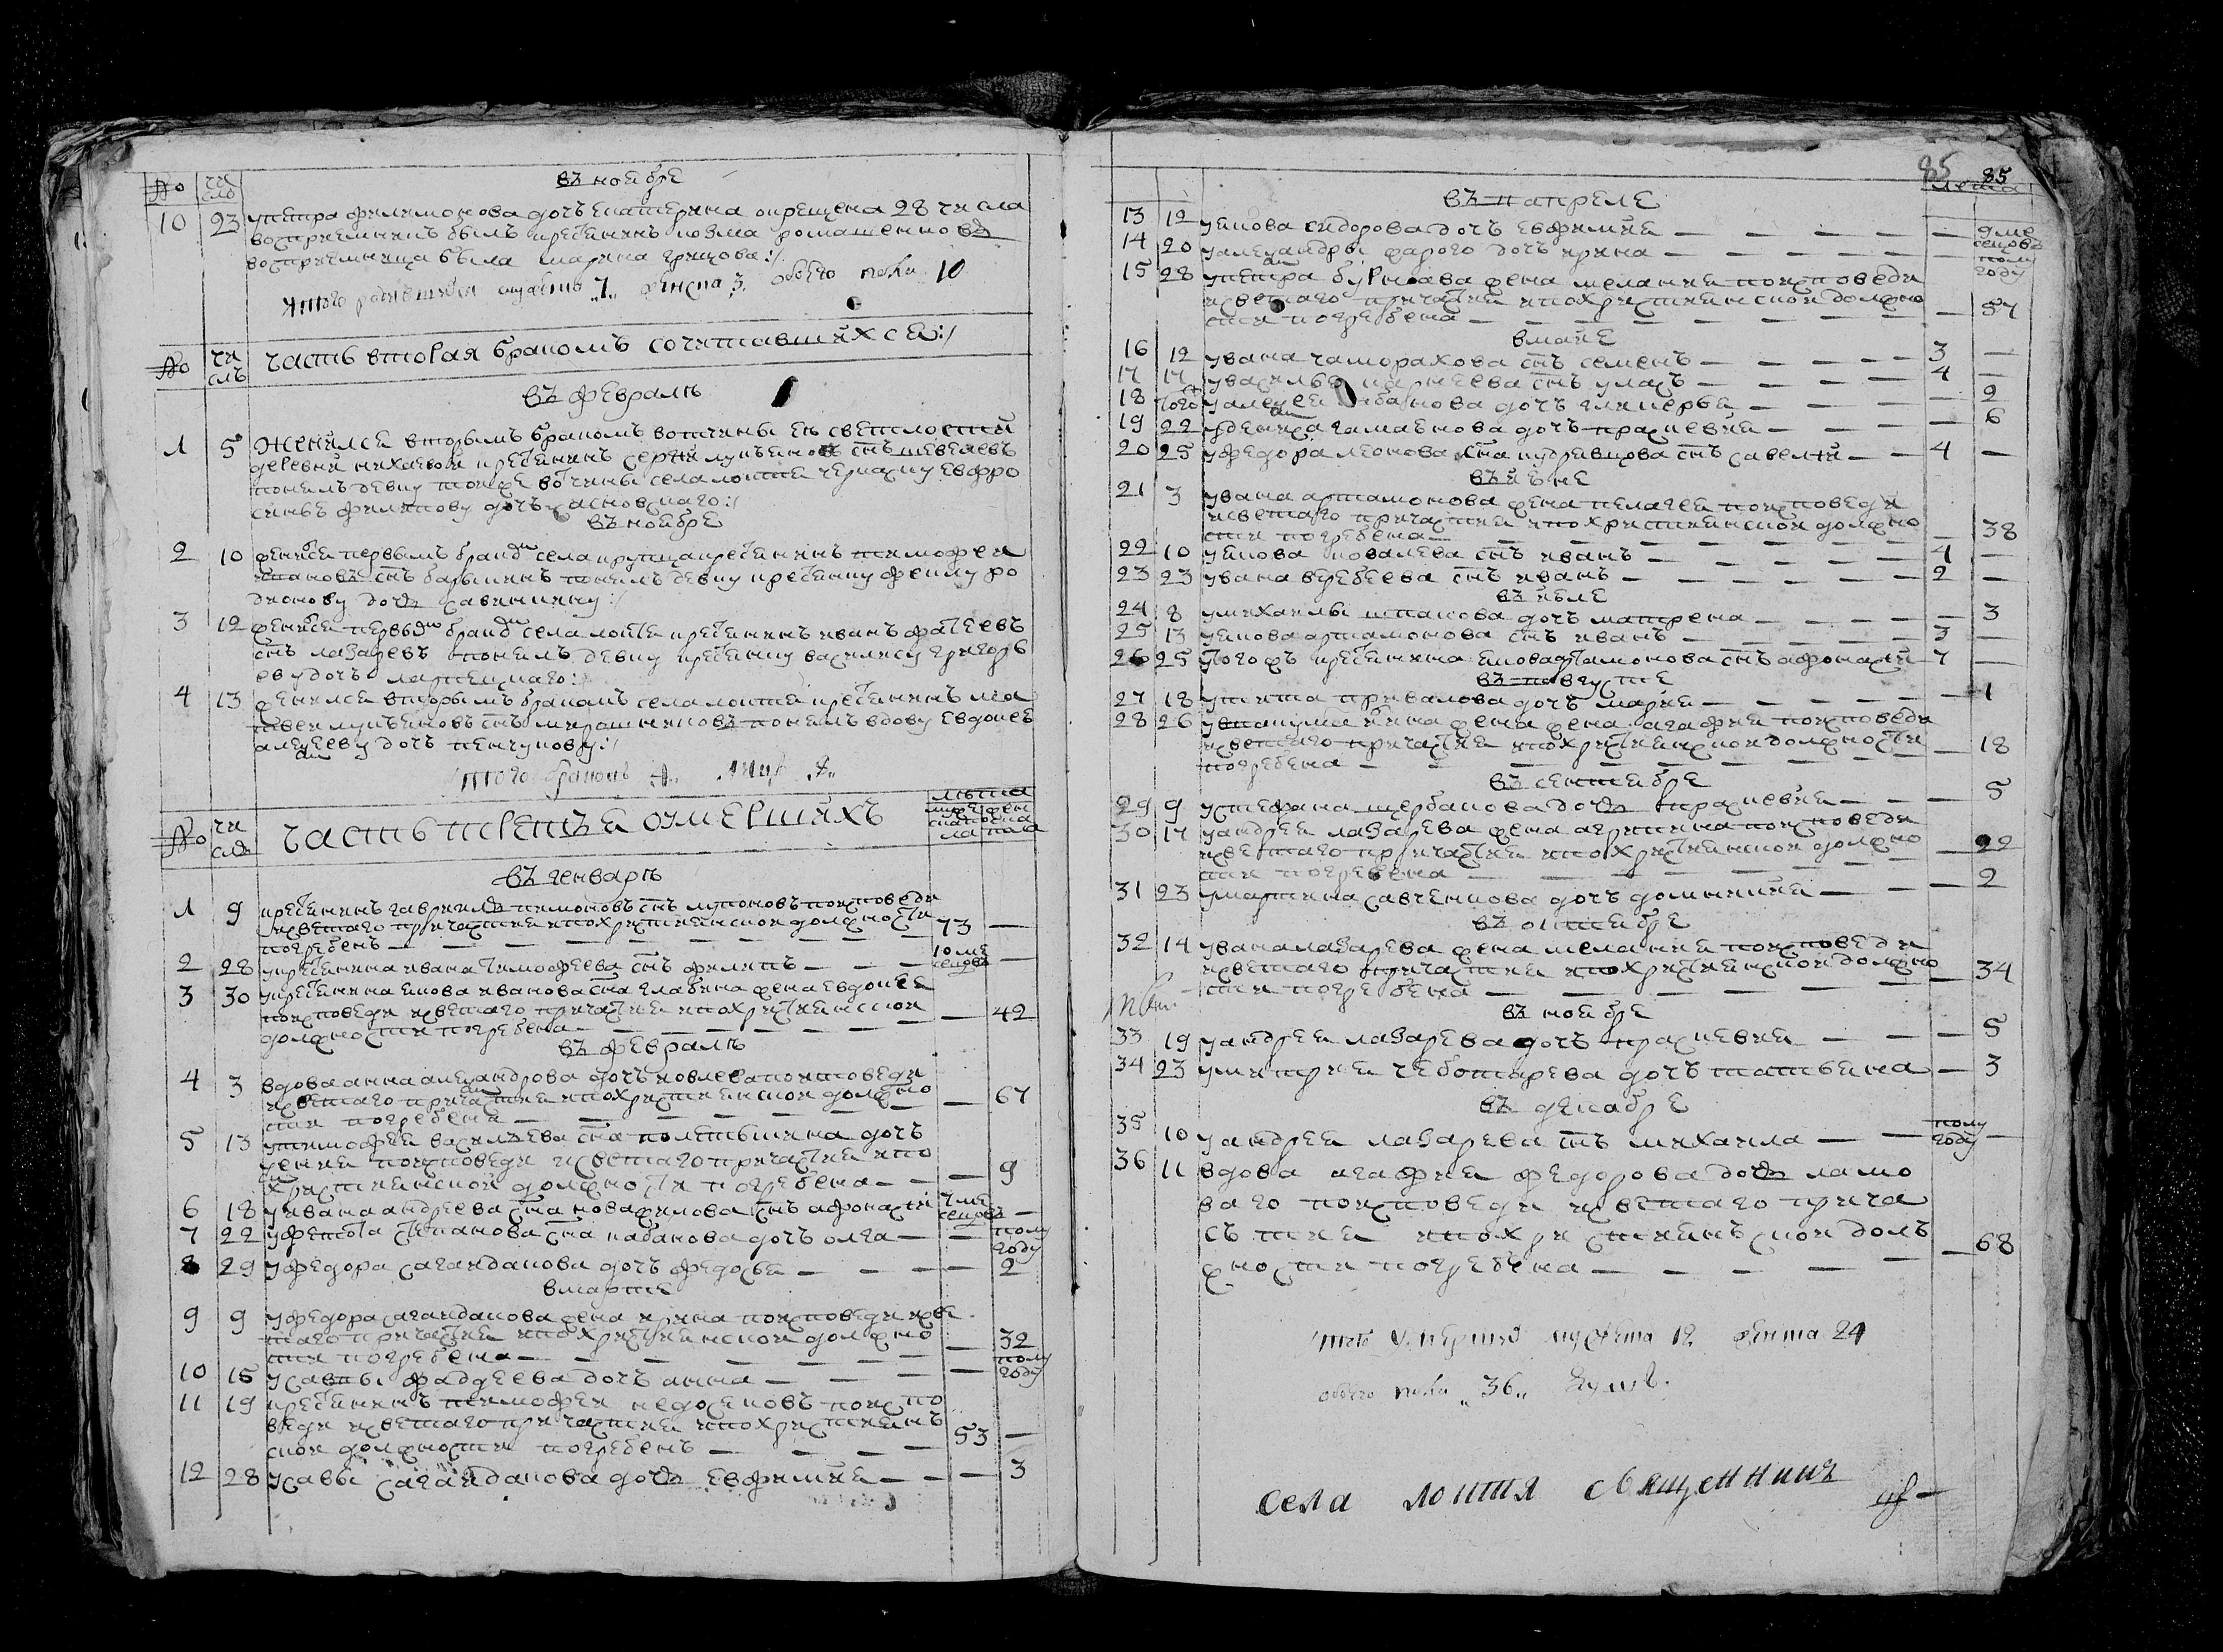 No чи сло въ ноябре
10 23 упетра филимонова дочь екатерина окрещена 28 числа
восприемникъ былъ кресtянинъ козма ромашенковъ
восприемница была марина грицова:/
Итого родившихся мужеска 7 женска 3 обоего пола 10
No чи слъ часть вторая бракомъ сочетавшихся:/
въ феврале
1 5 Женился вторымъ бракомъ вотчины ея светлости
деревни михаевой кресtянинъ сергей лукьяновъ снъ шевелевъ
понялъ девку тоя же вотчины села локтя черкаску евфро
синью филипову дочь
въ ноябре
2 10 женился первымъ бракомъ села крупца кресtянинъ тимофеи
степановъ снъ барышнъ понялъ девку кресtянку феклу ро
дионову дочь савинкину:/
3 12 женился первымъ бракомъ села локтя кресtянинъ иванъ фатеевъ
снъ лазаревъ понялъ девку кресtянку василису григорь
еву дочь
4 13 женился вторымъ бракомъ села локтя кресtянинъ ма
твеи лукьяновъ снъ мирошниковъ понялъ вдову евдокею
алексееву дочь пенчукову:/
Итого браковъ 4 лицъ
No чи сла часть третья о умершихъ
лѣта
муже ска по ла жен ска пола
въ генваре
1 9 кресtянинъ гавриилъ пимоновъ снъ лупоновъ поисповеди
исветаго причастия ипохристиянской должности
погребенъ — 73 —
2 28 укресtянина ивана тимофеева снъ филипъ — 10 ме сецовъ —
3 30 укресtянина якова иванова сна глабина жена евдокея
поисповеди исветаго причастия ипохристиянской
должности погребена — 42
въ феврале
4 3 вдова анна александрова дочь ковлева поисповеди
исветаго причастия ипохристиянской должно
сти погребена — 67
5 13 утимофея васильева сна полетыкина дочь
ксения поисповеди исветаго причастия ипо
християнской должности погребена — 9
6 18 уивана андреева сна новажилова снъ афонасии 7 ме сецовъ —
7 22 уфетота степанова сна кабанова дочь олга — полу году
8 29 уфедора сагайдакова дочь федосья — 2
вмарте
9 9 уфедора сагайдакова жена ирина поисповеди исве
таго причастия ипохристиянской должно
сти погребена — 32
10 15 усавы фаддеева дочь анна — полу году
11 19 кресtянинъ тимофеи недосековъ поиспо
веди исветаго причастия ипохристиянъ
ской должности погребенъ — 53 —
12 28 усавы сагайдакова дочь евфимия — 3
85 85
лета
въ апреле
13 12 уякова сидорова дочь евфимия — 9 ме сецовъ
14 20 уалександры жарого дочь ирина — полу году
15 28 упетра буркова жена мелания поисповеди
исветаго причастия ипохристиянской должно
сти погребена — 57
вмаие
16 12 увана чаморахова снъ семенъ — 3 —
17 17 увасилья карнеева снъ уласъ — 4 —
18 того уалексея дочь гликерья — 2
19 22 дочь праскевия — 6
20 25 уфедора леонова сна кудревцова снъ савелий — 4 —
въ июне
21 3 увана артамонова жена пелагея поисповеди
исветаго причастия ипохристиянской должно
сти погребена — 38
22 10 уякова ковалева снъ иванъ — 4 —
23 23 увана веребеева снъ иванъ — 2 —
въ июле
24 8 умихаилы шпакова дочь матрена — 3
25 13 уякова артамонова снъ иванъ — 3 —
26 25 тогожъ кресtянина якова артамонова снъ афонасий 7 —
въ августе
27 18 утита привалова дочь мария — 1
28 26 жена жена агафия поисповеди
исветаго причастия ипохристиянской должности
погребена — 18
въ сентебре
29 9 устефана щербакова дочь праскевия — 5
30 17 уандрея лазарева жена агрипина поисповеди
исветаго причастия ипохристиянской должно
сти погребена — 22
31 23 умартина савченкова дочь домникия — 2
въ октебре
32 14 увана лазарева жена мелания поисповеди
исветаго причастия ипохристиянской должно
сти погребена — 34
въ ноебре
33 19 уандрея лазарева дочь праскевия — 5
34 23 умитрея чеботарева дочь татьяна — 3
въ декабре
35 10 уандрея лазарева снъ михаила — полу году —
36 11 вдова агафия федорова дочь ламо
ваго поисповеди исветаго прича
съ тия ипохристиянъской долъ
жности погребена — 68
Итого умершихъ мужеска 12 женска 24
обоего пола 36 душъ.
Села локтя священникъ